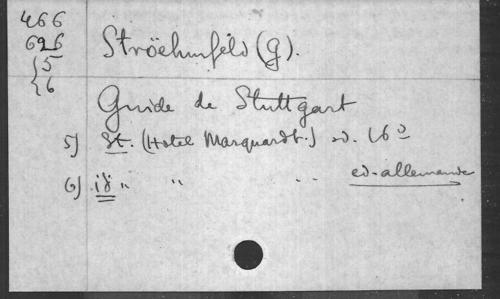 466
626
5
6
Ströehmfeld (G).
Guide de Stuttgart
5) St. (Hotel Marquardt.) ed. 16º
6) id " " " ed. allemande